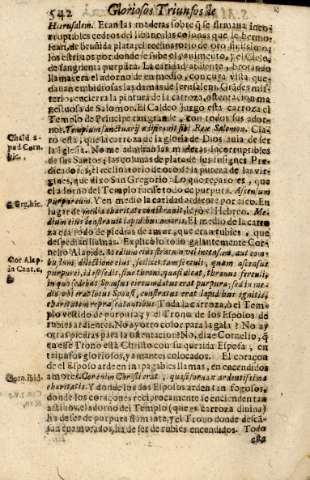 542 Gloriosos Triunfos de
Ierusalem. Eran las maderas sobre que se firmaua incor-
ruptibles cedros del libano: las colunas que le hermo-
sean, de bruñida plata: el reclinatorio de oro
los estriuos por donde se sube al pauimento, y el Cielo,
de sangrienta purpura. La cortina ardiente, brotando
llamas era el adorno de en medio, en cuya vista que-
dauan embidiosas las damas de Ierusalem. Grandes mis-
terios, encierra la pintura de la carroza, ostentacion ma-
gestuosa de Salomon. El Caldeo juzgo esta carroza el
Templo de Principe tan grande, con todos sus ador-
nos. Templum sanctuarij ædificauit sibi Rex Salomon. Cla-
ro està, que la carroza de la gloria de Dios auia de ser
la Iglesia. No me admiran las maderas incorruptibles
de sus Santos; las colunas de plata de sus insignes Pre-
dicadores; el reclinatorio de oro de la pureza de las vir-
gines, que dixo San Gregorio: Lo que reparo es, que
el adorno del Templo fuesse todo de purpura. Ascensum
purpureum. Y en medio la caridad ardiente por arco. En
lugar de media charitate constrauit, leyò el Hebreo. Me-
dium eius constrauit lapidibus amoris. El medio de la carro-
za era todo de piedras de amor, que eran rubies, que
despedian llamas. Explicòlo todo galantemente Cor-
nelio Alapide. Medium eius stratum vel instratum, aut con-
bustum, dilectione eius, scilicet tam fecit, quam ascensus
purpurei, id est sedis, siue throni, quasi dicat, thronus ferculi,
in quo sedebat Sponsus circumdatus erat purpura; sed in me-
dio, vbi erat locus Sponsi, constratus erat lapidibus igneis,
charitatem representantibus Toda la carroza, ò el Tem-
plo vestido de purpura; y el Trono de los Esposos de
rubies ardientes. No ay otro color para la gala? No ay
otras piedras para la ostentacion? No, dize Cornelio, que
en esse Trono està Christo con su querida Esposa, en
triunfos gloriosos, y amantes colocados. El coraçon
de el Esposo arde en inapagables llamas, en encendidos
amores. Corculum Christi erat, quasi fornax ardentissima
charitatis. Y donde los dos Esposos arden tan fogosos,
donde los coraçones reciprocamente se encienden tan
actiuos, el adorno del Templo (que es carroza diuina)
ha de ser de purpura flamante, y el Trono donde descã-
san enamorados, ha de ser de rubies encendidos. Todo
esta
Chald. a-
pud Corn.
hic.
S. Greg. hic.
Cor Alap.
in Cant. c.
Corn. ibid.